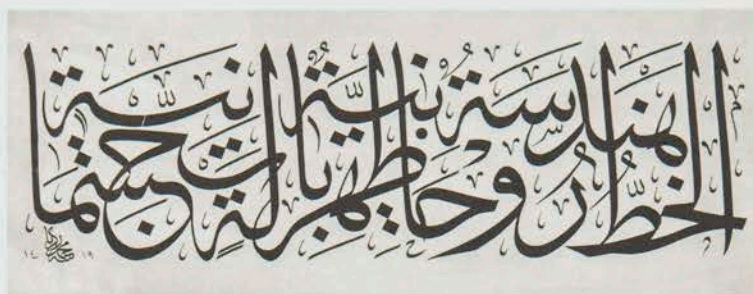 الخَطُّ هَنْدَسَةٌ رُوحَانِيَّةٌ ظَهَرَتْ بِآلَةٍ جِسْمَانِيَّةٍ
١٤١٩